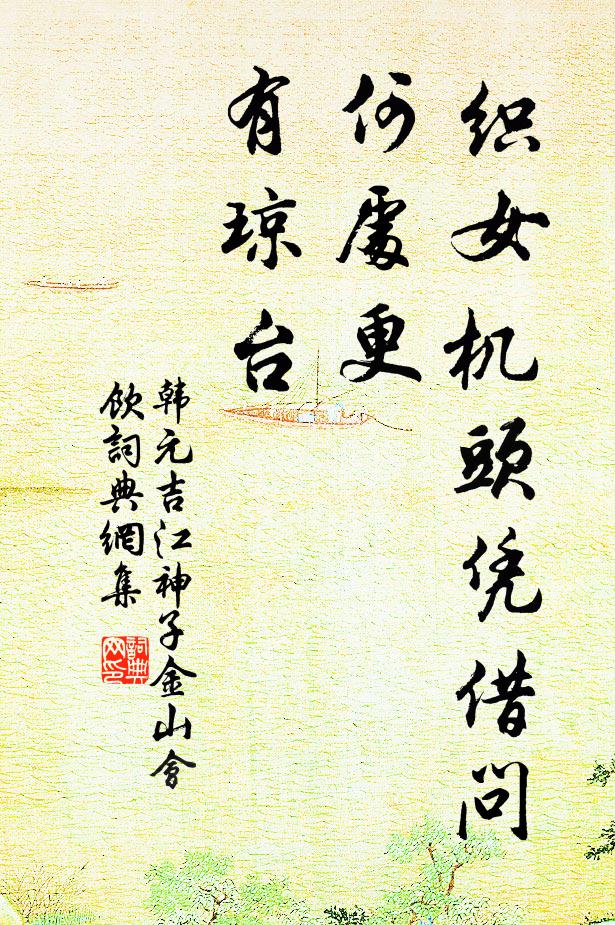 织女机頭凭借问
何處更
有琼台
韩元吉江神子金山會
飲詞典網集
詞典
网印